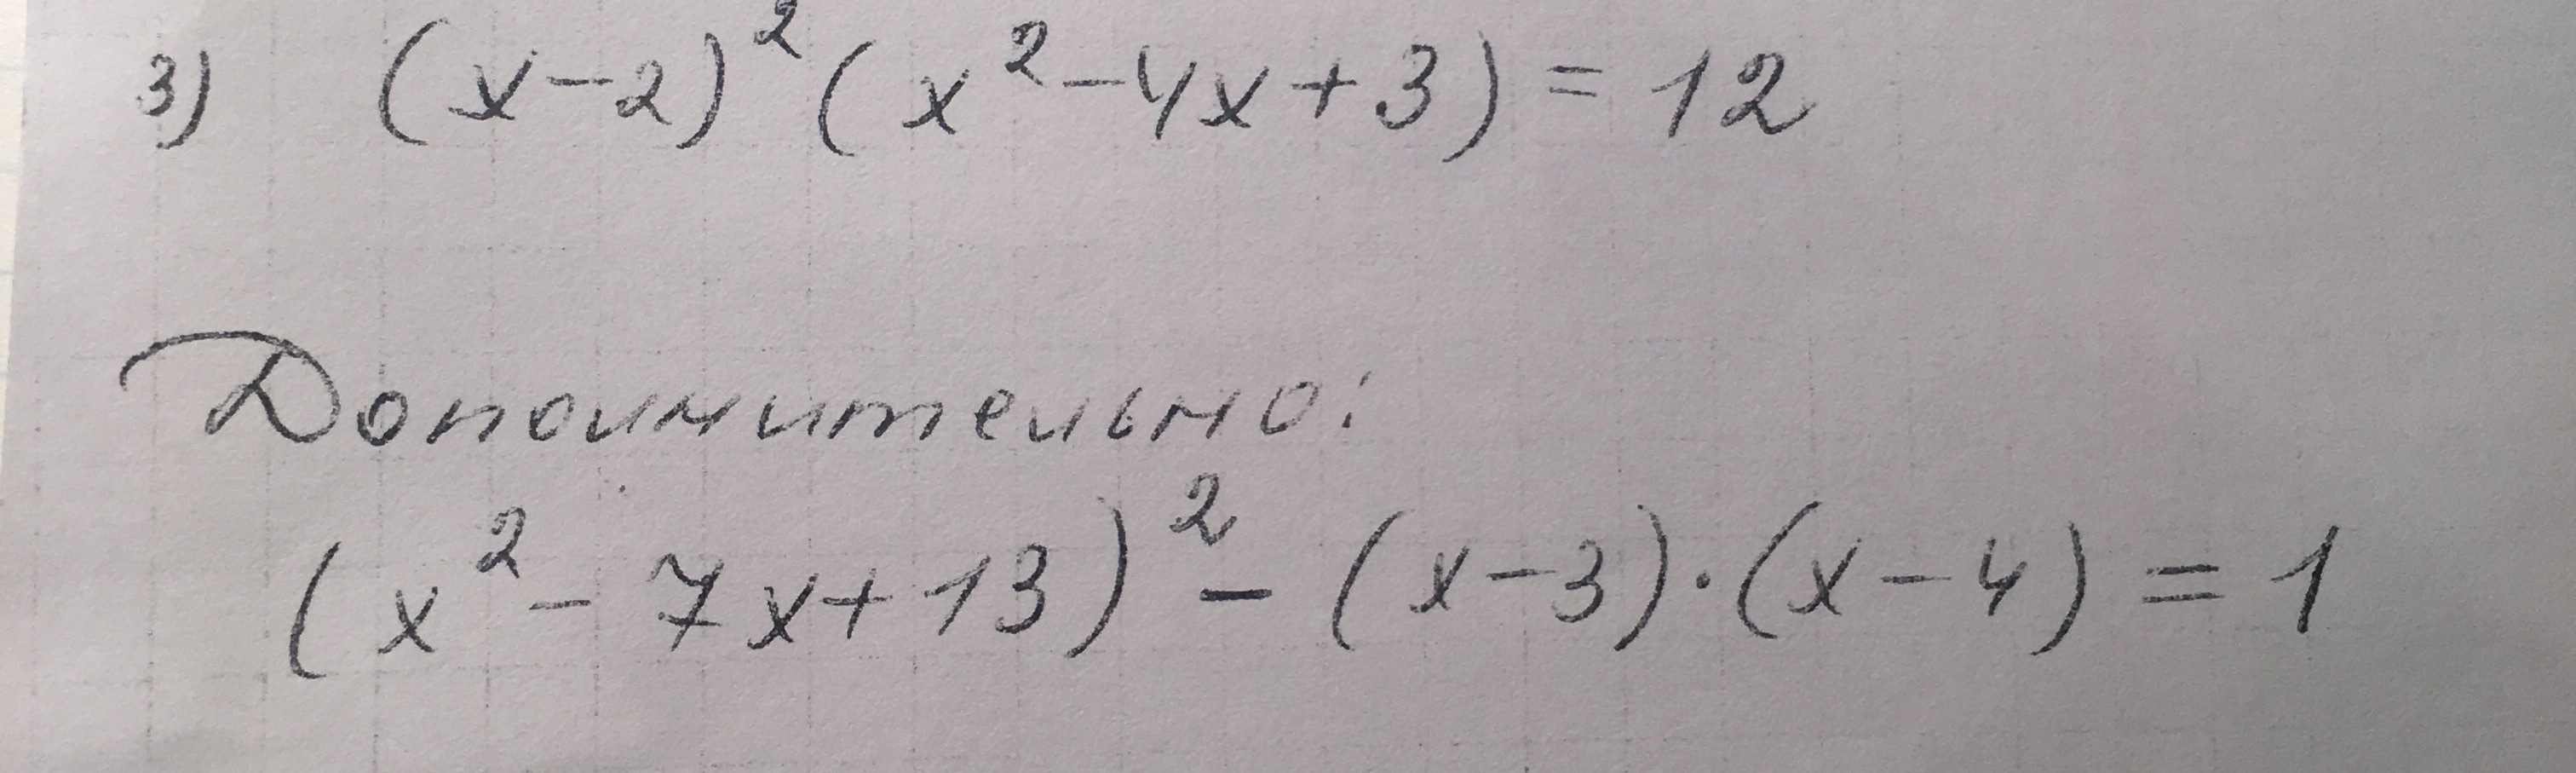 3) (x-2)²(x²-4x+3)=12
Дополнительно:
(x²-7x+13)²-(x-3)·(x-4)=1